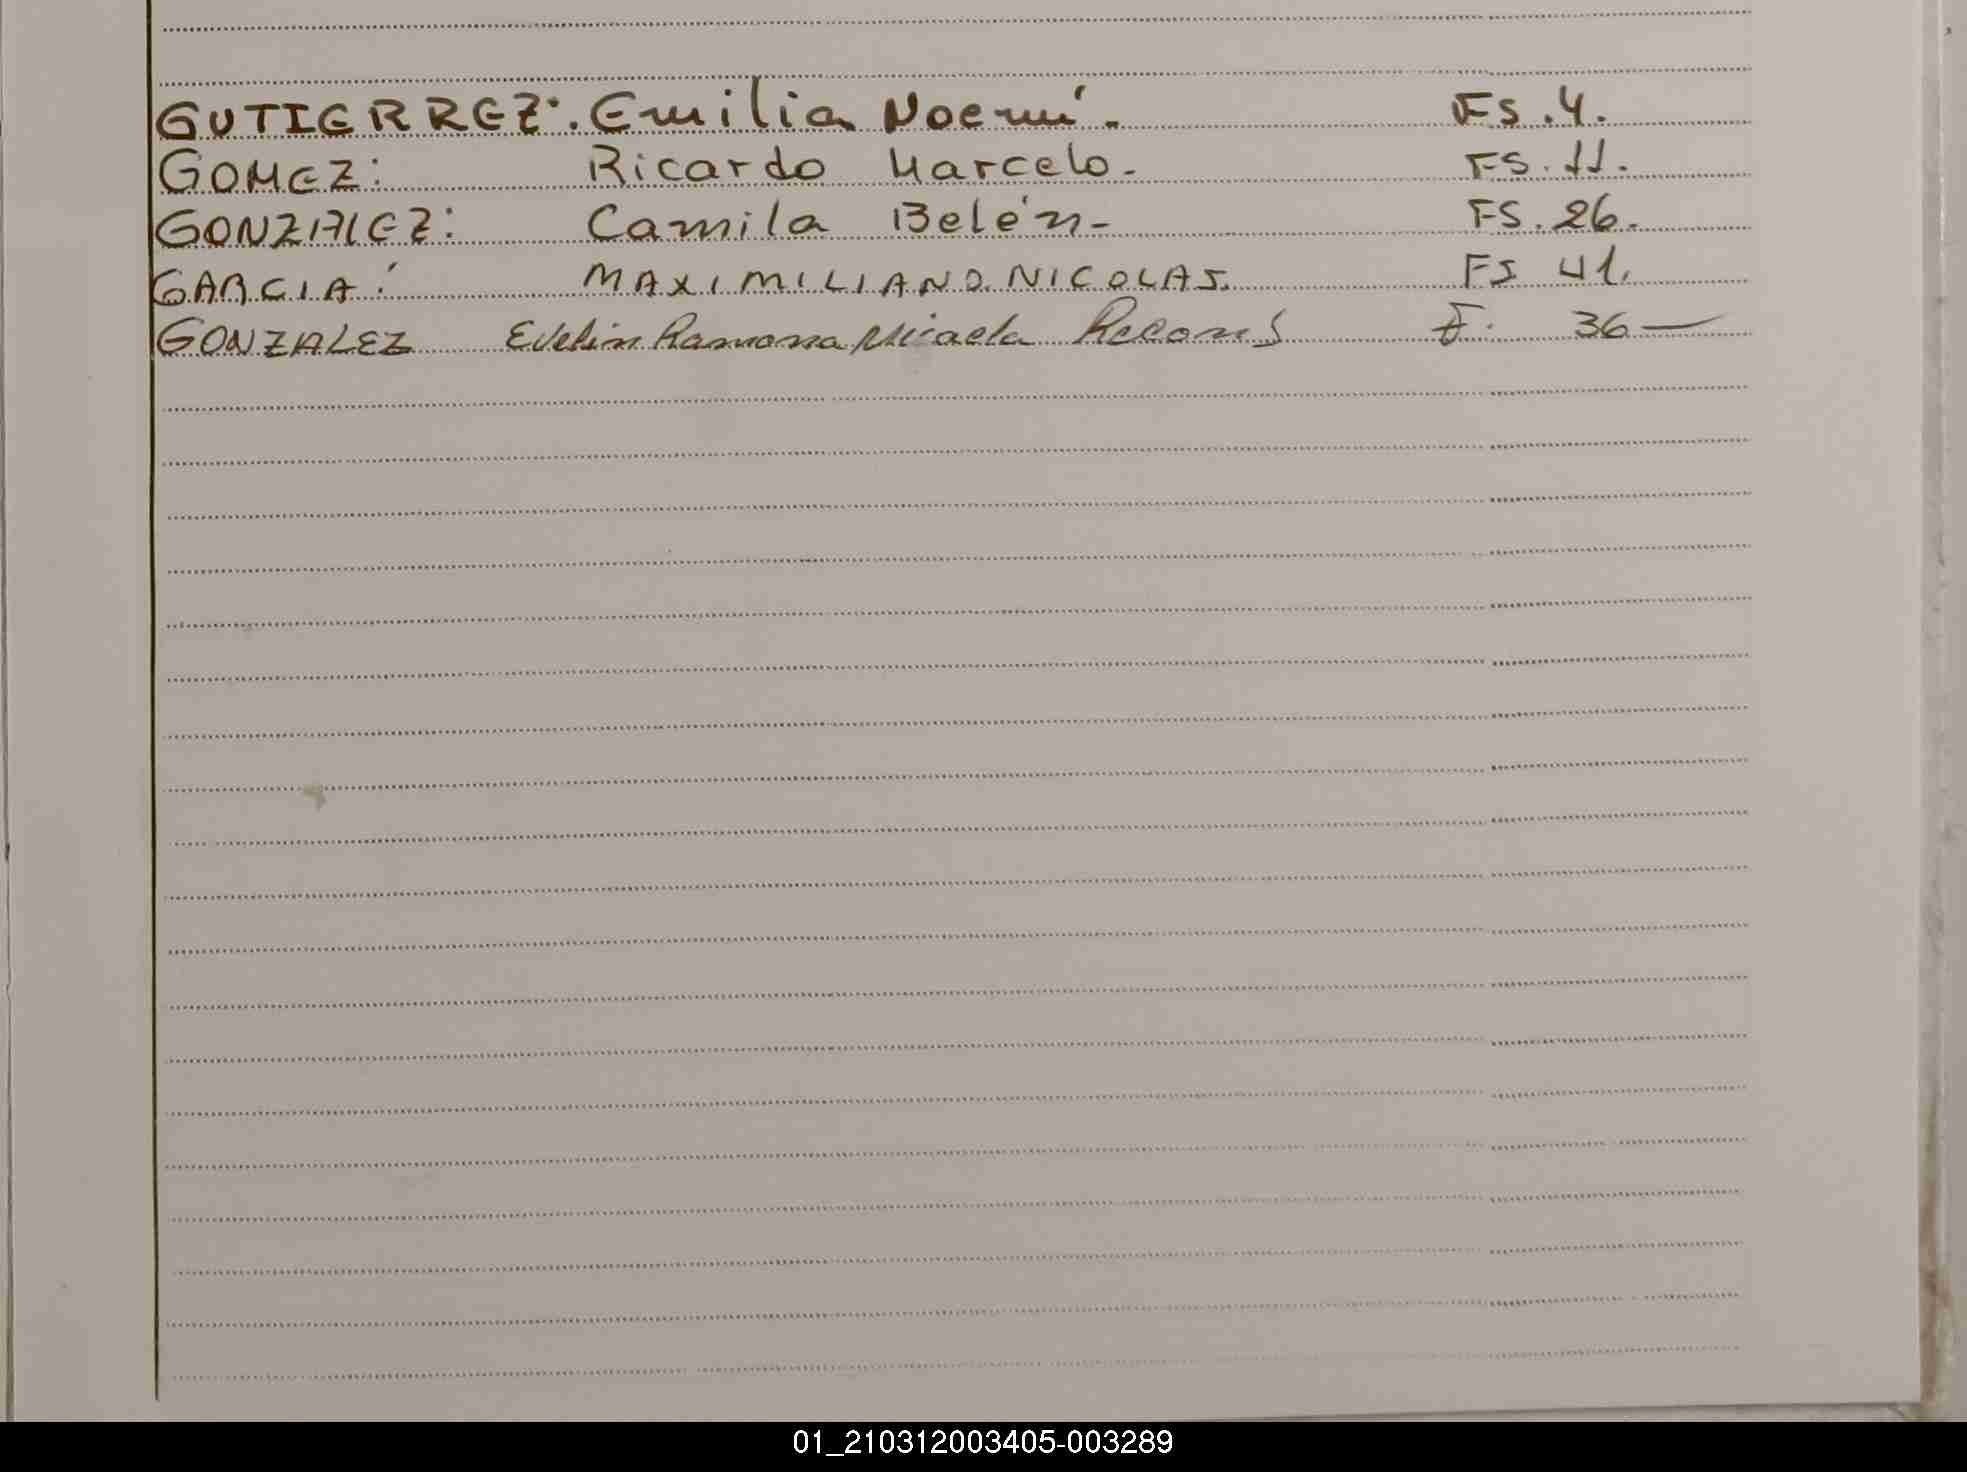 GUTIERREZ: Emilia Noemí. FS. 4.
GOMEZ: Ricardo Marcelo. FS. 11.
GONZALEZ: Camila Belén - FS. 26.
GARCIA: MAXIMILIANO NICOLAS. FS 41.
GONZALEZ Evelin Ramona Micaela F. 36 —
01_210312003405-003289